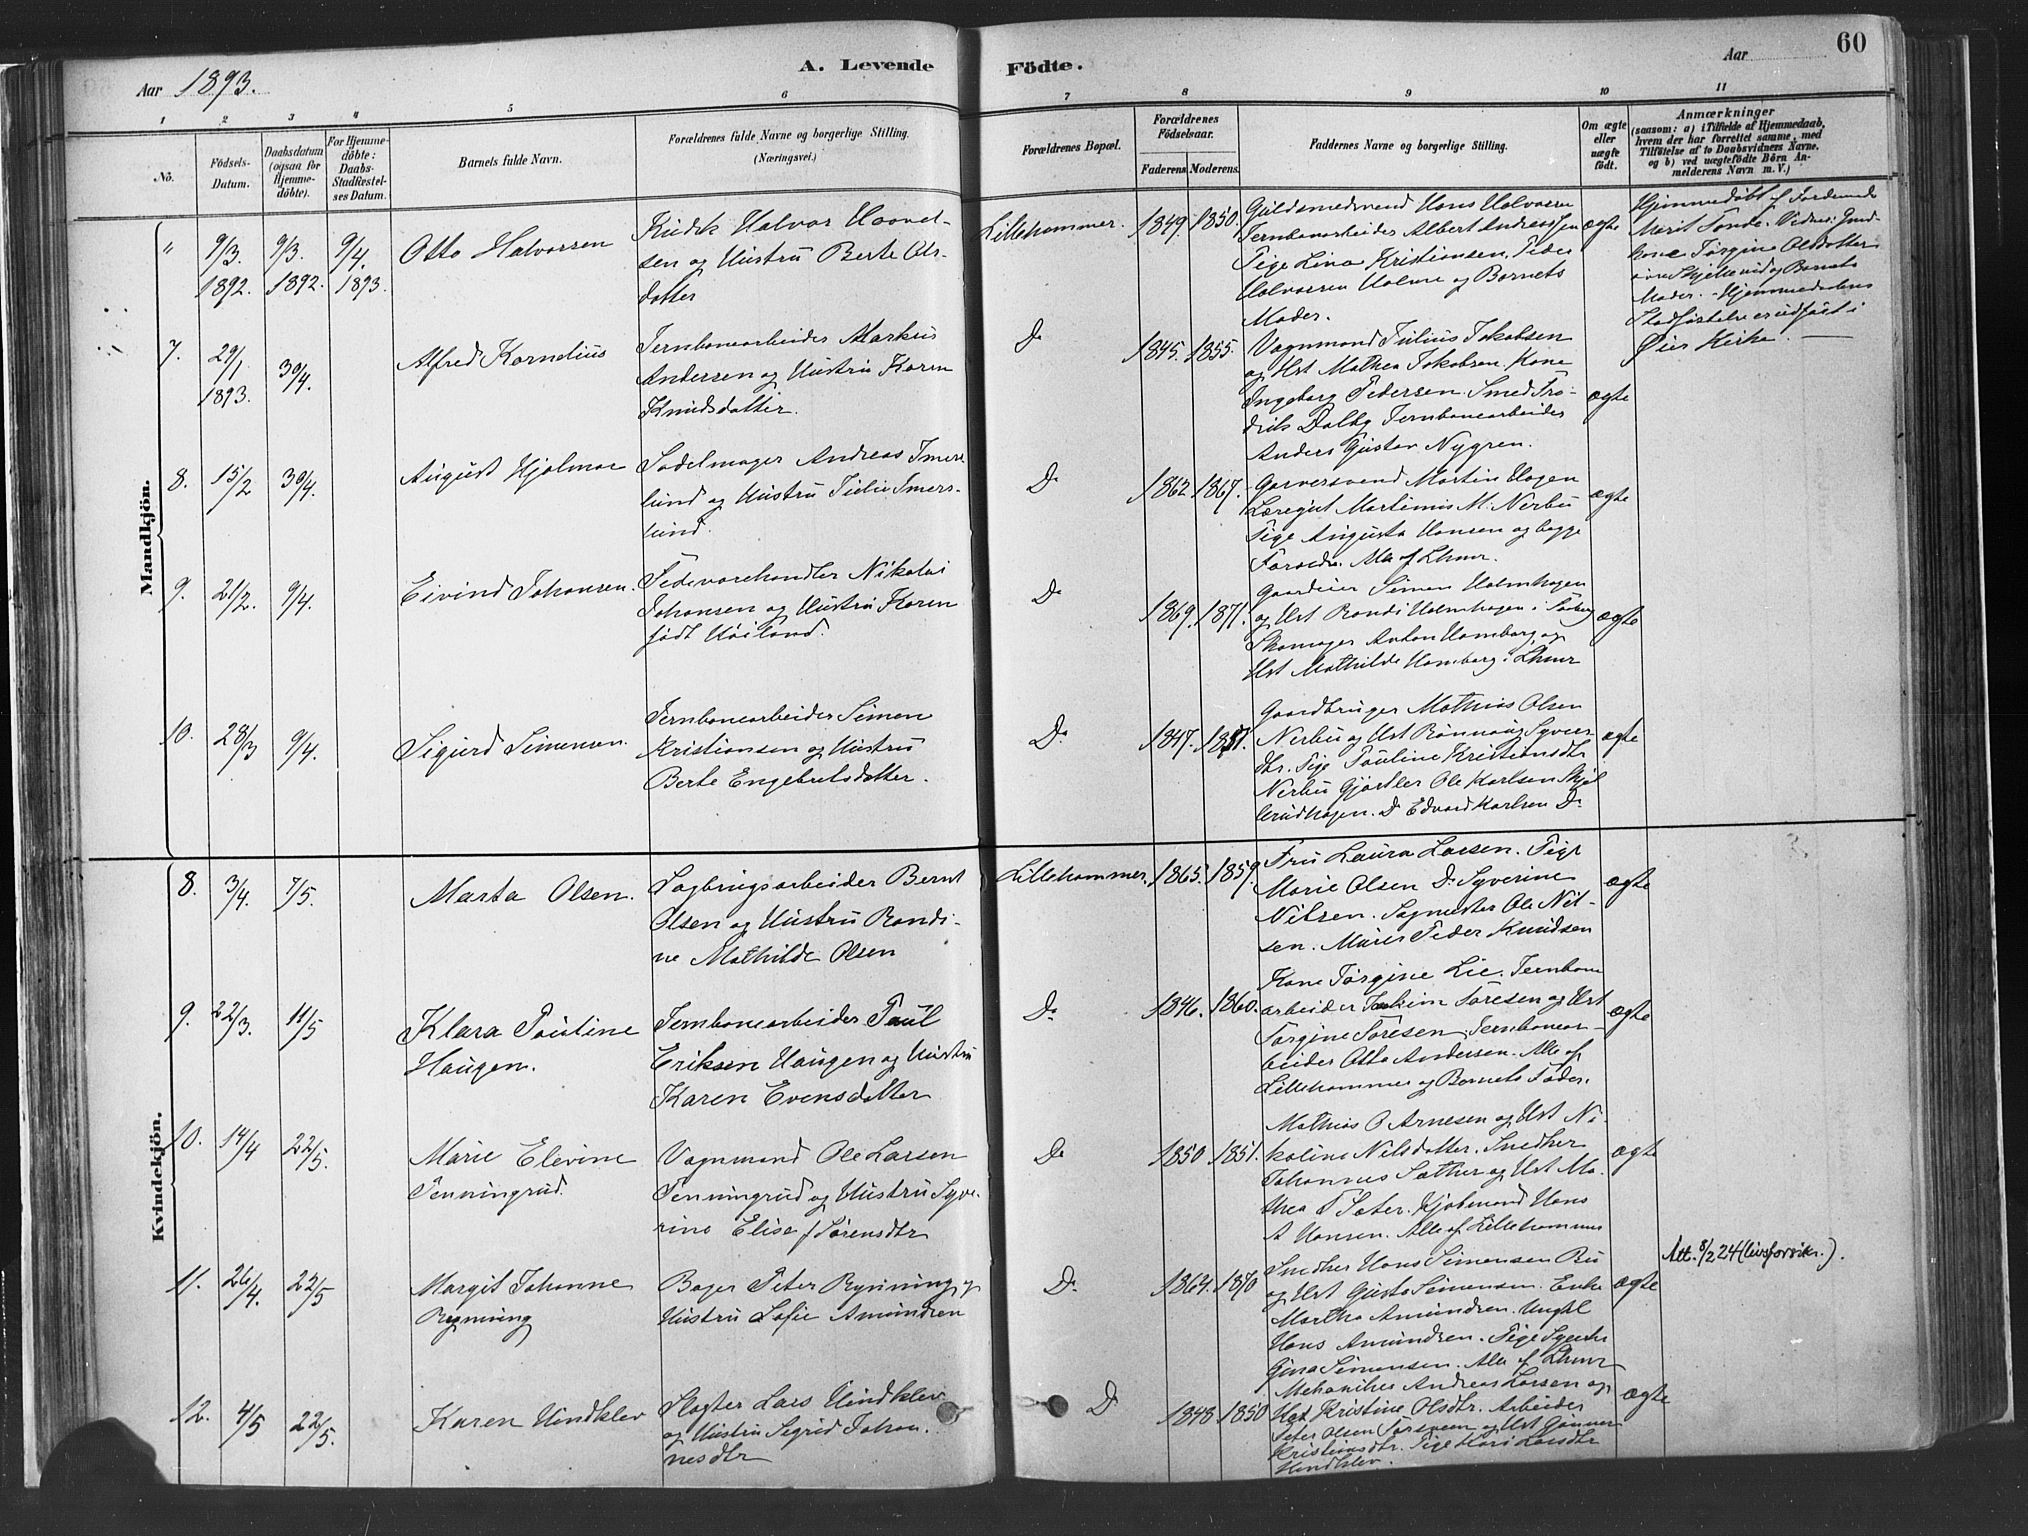 Aar 1893.
A. Levende Födte.
Aar
60
1 2 3 4 5 6 7 8 9 10 11
No.
Födsels-Datum.
Daabsdatum (ogsaa for Hjemme-döbte).
For Hjemme-döbte: Daabs-Stadfæstel-ses Datum.
Barnets fulde Navn.
Forældrenes fulde Navne og borgerlige Stilling. (Næringsvei.)
Forældrenes Bopæl.
Forældrenes Födselsaar.
Faderens Moderens.
Faddernes Navne og borgerlige Stilling.
Om ægte eller uægte födt.
Anmærkninger
(saasom: a) i Tilfælde af Hjemmedaab, hvem der har forrettet samme, med Tilföielse af to Daabsvidners Navne, og b) ved uægtefödte Börn Anmelderens Navn m. V.)
Mandkjön.
" 9/3. 1892. 9/3. 1892. 9/4. 1893.
Otto Halvorsen
Halvor Haavel-
sen og Hustru Berte Ols-
datter
Lillehammer. 1849. 1850.
Guldsmedsvend Hans Halvorsen
Jernbanearbeider Albert Andreassen
Pige Lina Kristiansen, Peder
Halvorsen Holme og Barnets
Moder.
ægte
Hjemmedöbt af Jordemoder
Marit Tande. Vidner:
Torgine Olsdatter
og Barnets
Moder. - Hjemmedaabens
Stadfæstelse er udfört i
Öier Kirke.
7. 29/1 1893. 30/4.
Alfred Kornelius
Jernbanearbeider Markus
Andersen og Hustru Karen
Knudsdatter.
Do 1845. 1855.
Vognmand Julius Jakobsen
og Hst Mathea Jakobsen. Kone
Ingeborg Pedersen. Smed Fre-
drik Dalby Jernbanearbeider
Anders Gustav Nygren.
ægte
8. 15/2 30/4.
August Hjalmar
Sadelmager Andreas Smers-
lund og Hustru Julie Smers-
lund.
Do 1862 1867.
Garversvend Martin Hagen
Læregut Martinius M. Nerbu
Pige Augusta Hansen og begge
Foræld. Alle af Lhmr.
ægte
9. 21/2. 9/4.
Eivind Johansen.
Fedevarehandler Nikolai
Johansen og Hustru Karen
födt Höiland.
Do 1869. 1871.
Gaardeier Simen Holmhagen
og Hst Randi Holmhagen i Faaberg
Skomager Anton Homborg og
Hst Mathilde Homborg i Lhmr
ægte
10. 28/3 9/4.
Sigurd Simensen.
Jernbanearbeider Simen
Kristiansen og Hustru
Berte Engebretsdatter.
Do 1847. 1851.
Gaardbruger Mathias Olsen
Nerbu og Hst Rönnaug Syver-
dtr. Pige Pauline Kristiansdtr
Nerbu Gjörtler Ole Karlsen Skjel
lerudhagen. Do Edvard Karlsen Do
ægte
Kvindekjön.
8. 3/4. 7/5.
Marta Olsen.
Sagbrugsarbeider Bernt
Olsen og Hustru Randi-
ne Mathilde Olsen
Lillehammer. 1865. 1859.
Fru Laura Larsen. Pige
Marie Olsen Do Syverine
Nilsen. Sagmester Ole Nil-
sen. Murer Peder Knudsen
ægte
9. 22/3. 11/5
Klara Pauline
Haugen.
Jernbanearbeider Paul
Eriksen Haugen og Hustru
Karen Evensdatter
Do 1846. 1860.
Kone Torgine Lie. Jernbane
arbeider Joakim Toresen og Hst
Torgine Toresen. Jernbanear-
beider Otto Andersen. Alle af
Lillehammer og Barnets Fader.
ægte
10. 14/4 22/5.
Marie Elevine
Tenningrud.
Vognmand Ole Larsen
Tenningrud og Hustru Syve-
rine Elise f. Sörensdtr
Do 1850 1851.
Mathias O Arnesen og Hst Ni-
koline Nilsdatter. Snedker
Johannes Sæther og Hst Ma-
thea T Sæter. Kjöbmand Hans
A Hansen. Alle af Lillehammer
ægte
11. 26/4. 22/5
Margit Johanne
Rynning
Bager Peter Rynning og
Hustru Sofie Amundsen
Do 1864. 1870
Snedker Hans Simensen Bu
og Hst Gusta Simensen. Enke
Martha Amundsen. Ungkl
Hans Amundsen. Pige
Gina Simensen. Alle af Lhmr
ægte
Att. 8/2 24 (livsforsikr.).
12. 4/5 22/5.
Karen Hindklev
Slagter Lars Hindklev
og Hustru Sigrid Johan-
nesdtr
Do 1848 1850
Mekaniker Andreas Larsen og
Hst Kristine Olsdtr. Arbeider
Peter Olsen og Hst Gunner
Kristiansdtr. Pige Kari Larsdtr
Hindklev.
ægte